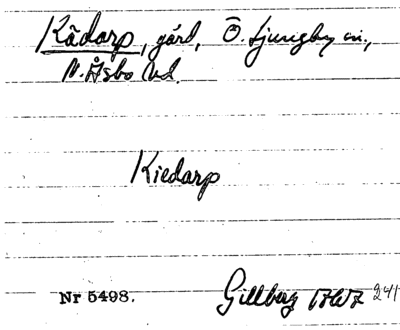 Kådarp, gård, Ö. Ljungby sn.,
N. Åsbo hd.
Kiedarp
Nr 5498. Gillberg 241